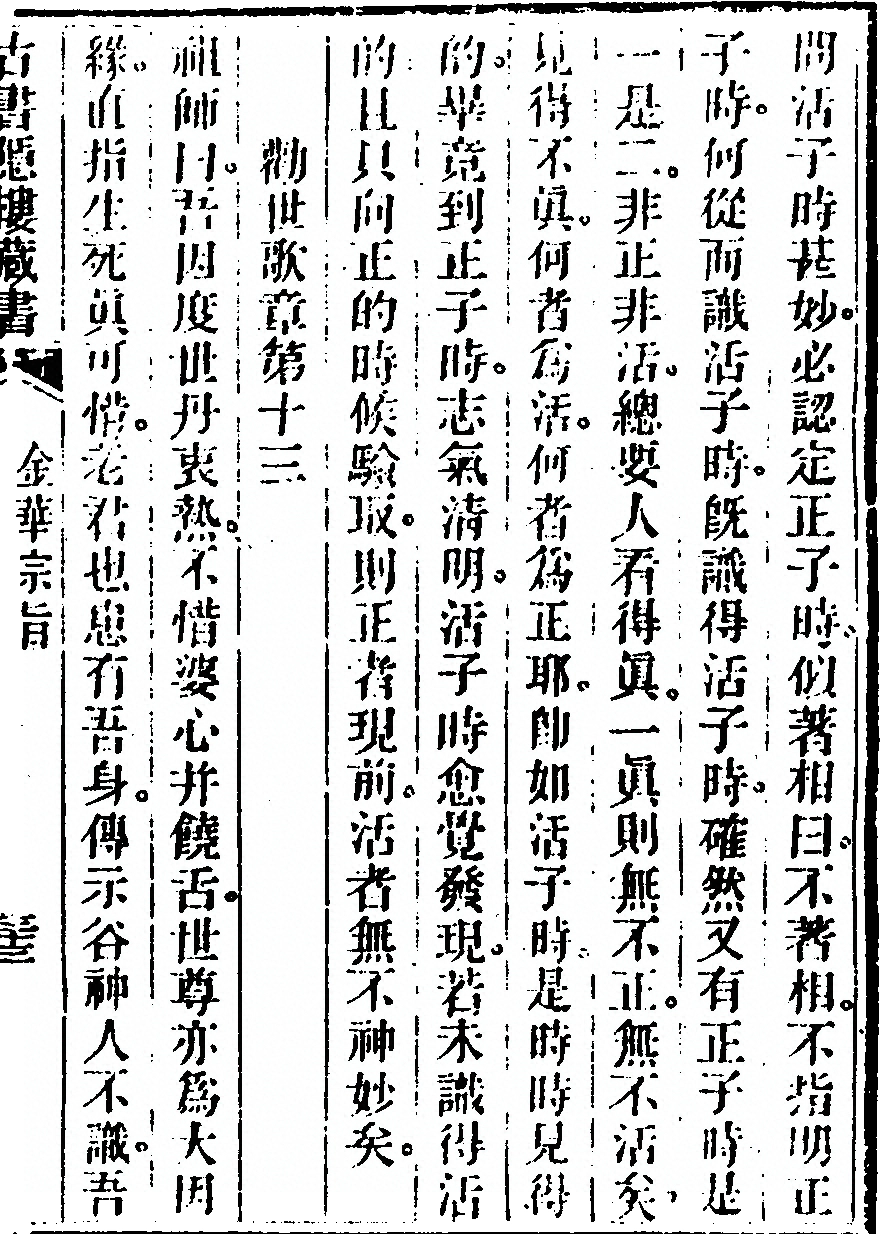 問活子時甚妙。必認定正子時。似著相曰。不著相。不指明正
子時。何從而識活子時。既識得活子時。確然又有正子時是
一是二。非正非活。總要人看得眞。一眞則無不正。無不活矣、
見得不眞。何者爲活。何者爲正耶。卽如活子時。是時時見得
的。畢竟到正子時。志氣淸明。活子時愈覺發現。若未識得活
的且只向正的時候驗取。則正者現前。活者無不神妙矣。
勸世歌章第十三
祖師曰。吾因度世丹衷熱。不惜婆心并饒舌。世尊亦爲大因
緣。直指生死眞可惜。老君也患有吾身。傳示谷神人不識。吾
古書隱樓藏書
金華宗旨